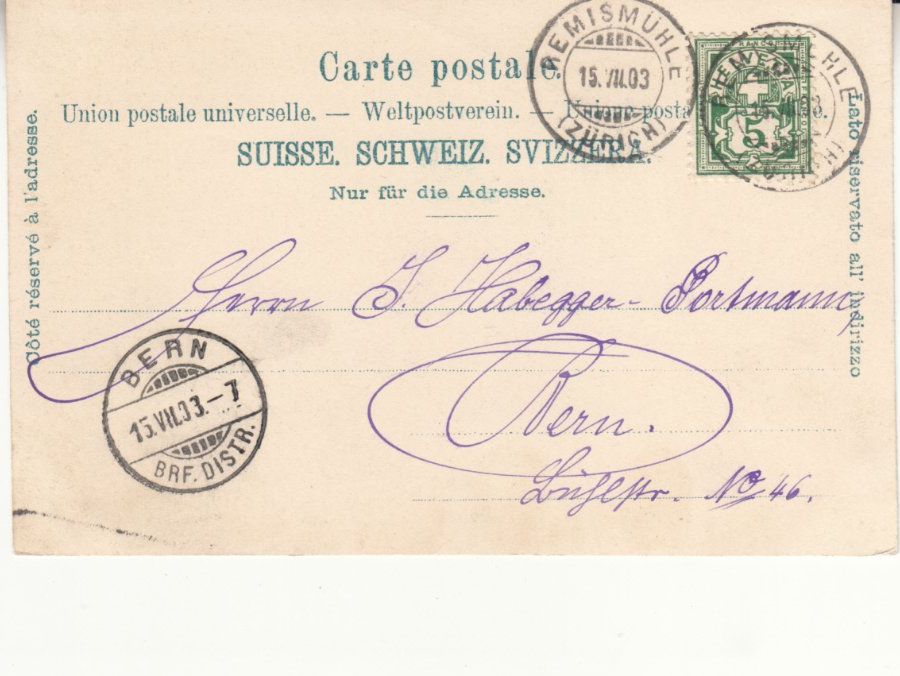 Carte postale.
Union postale universelle. — Weltpostverein. — Unione posta
SUISSE. SCHWEIZ. SVIZZERA.
Nur für die Adresse.
Côté réservé à l'adresse.
Lato riservato all' indirizzo
REMISMÜHLE
15.VII.03
(ZÜRICH)
FRANCO
HELVETIA
5
Herrn J. Habegger-Portmann,
Bern.
Bühlstr. No 46.
BERN
15.VII.03.-7
BRF. DISTR.